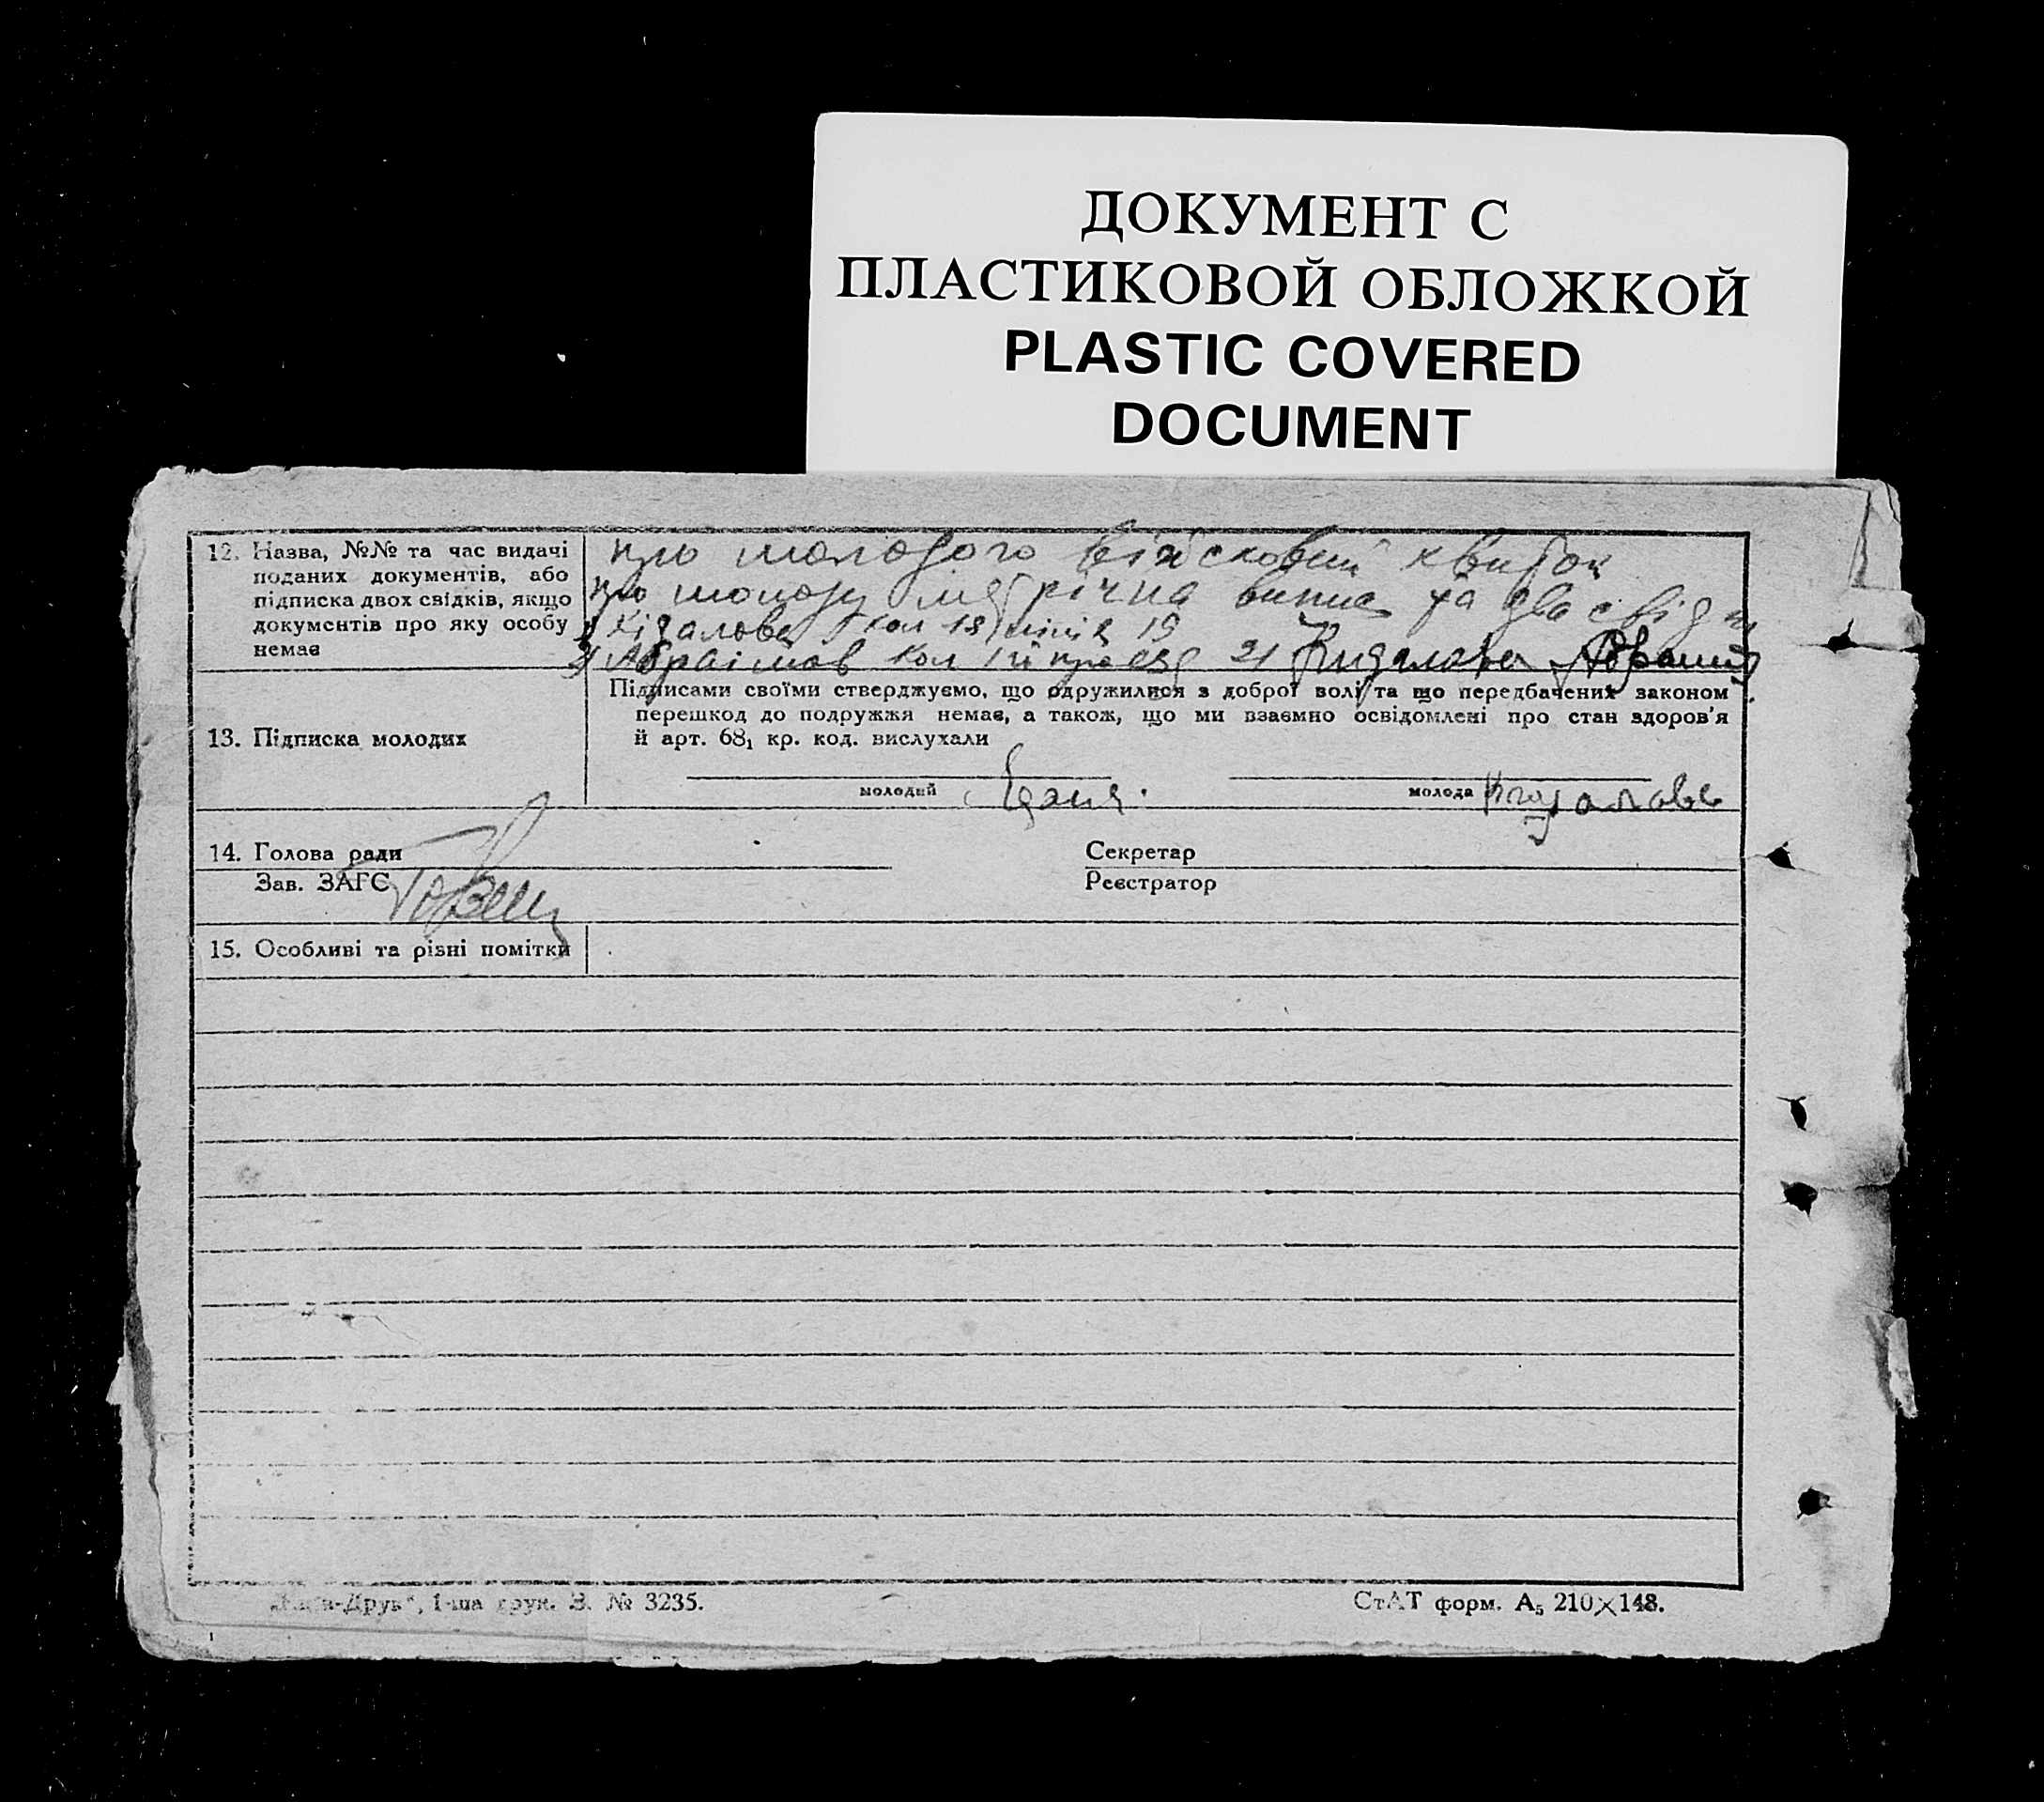 ДОКУМЕНТ С
ПЛАСТИКОВОЙ ОБЛОЖКОЙ
PLASTIC COVERED
DOCUMENT
12. Назва, №№ та час видачі
поданих документів, або
підписка двох свідків, якщо
документів про яку особу
немає
про молодого військовий квиток
про молоду метрічна випис та два свідки
1) Кідалова кол 18 лінія 19
2) Абраімов кол 1й проезд 21 Кидалова
13. Підписка молодих
Підписами своїми стверджуємо, що одружилися з доброї волі та що передбачених законом
перешкод до подружжя немає, а також, що ми взаємно освідомлені про стан здоров'я
й арт. 68₁ кр. код. вислухали
молодий
молода Кидалова
14. Голова ради
Секретар
Зав. ЗАГС
Реєстратор
15. Особливі та різні помітки
-Друк", 1-ша друк. З. № 3235.
СтАТ форм. А₅ 210×148.